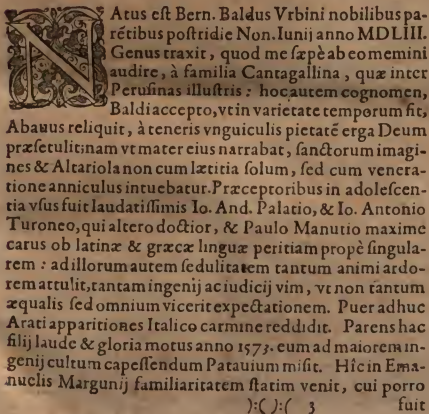 NAtus eſt Bern. Baldus Vrbini nobilibus pa-
rētibus poſtridie Non. Iunij anno MDLIII.
Genus traxit, quod me ſæpè ab eo memini
audire, à familia Cantagallina, quæ inter
Peruſinas illuſtris: hoc autem cognomen,
Baldi accepto, vt in varietate temporum fit,
Abauus reliquit, à teneris vnguiculis pietatē erga Deum
præſetulit: nam vt mater eius narrabat, ſanctorum imagi-
nes & Altariola non cum lætitia ſolum, ſed cum venera-
tione anniculus intuebatur. Præceptoribus in adoleſcen-
tia vſus fuit laudatiſſimis Io. And. Palatio, & Io. Antonio
Turoneo, qui altero doctior, & Paulo Manutio maxime
carus ob latinæ & græcæ linguæ peritiam propè ſingula-
rem: ad illorum autem ſedulitatem tantum animi ardo-
rem attulit, tantam ingenij ac iudicij vim, vt non tantum
æqualis ſed omnium vicerit expectationem. Puer adhuc
Arati apparitiones Italico carmine reddidit. Parens hac
filij laude & gloria motus anno 1573. eum ad maiorem in-
genij cultum capeſſendum Patauium miſit. Hîc in Ema-
nuelis Margunij familiaritatem ſtatim venit, cui porro
):( ):( 3 fuit